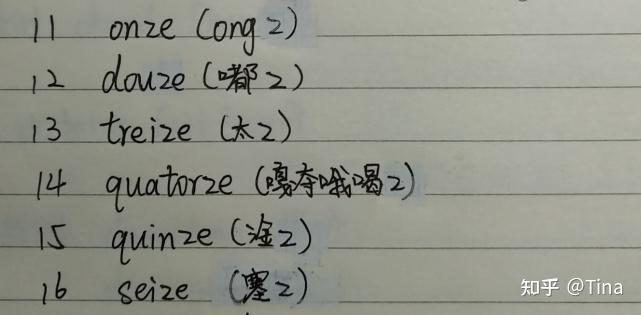 11 onze (ong z)
12 douze (嘟 z)
13 treize (太 z)
14 quatorze (嘎夺哦喝 z)
15 quinze (淦 z)
16 seize (塞 z)
知乎 @Tina